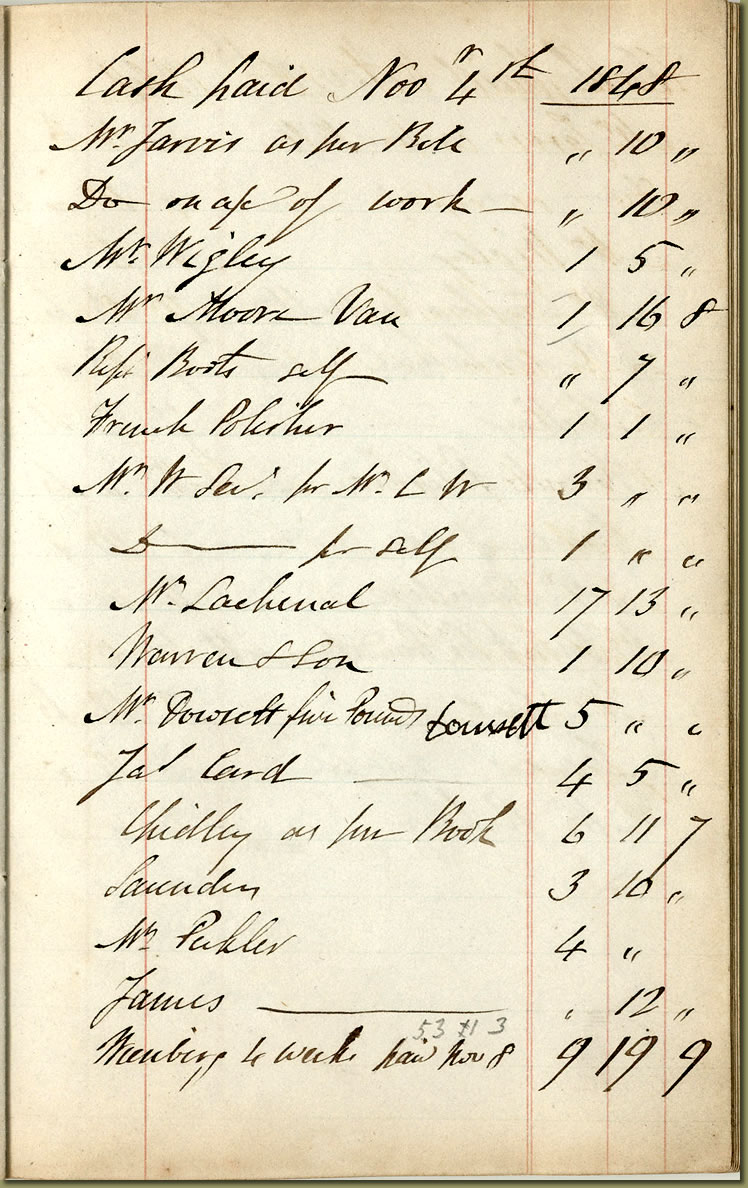 Cash paid Novr 4st 1848
Mr Jarvis as per Bill " 10 "
Do on a/c of work — " 10 "
Mr Wigley 1 5 "
Mr Moore Van 1 16 8
Boots self " 7 "
French Polisher 1 1 "
Mr W Senr for Mr C W 3 " "
D—— for self 1 " "
Mr Lachenal 17 13 "
Warren & Son 1 10 "
Mr Dowsett five Pounds Dowsett 5 " "
Jas Card 4 5 "
Chidley as per Book 6 11 7
Saunders 3 10 "
Mr 4 "
James —— " 12 "
53 11 3
4 weeks paid Nov 8 9 19 9